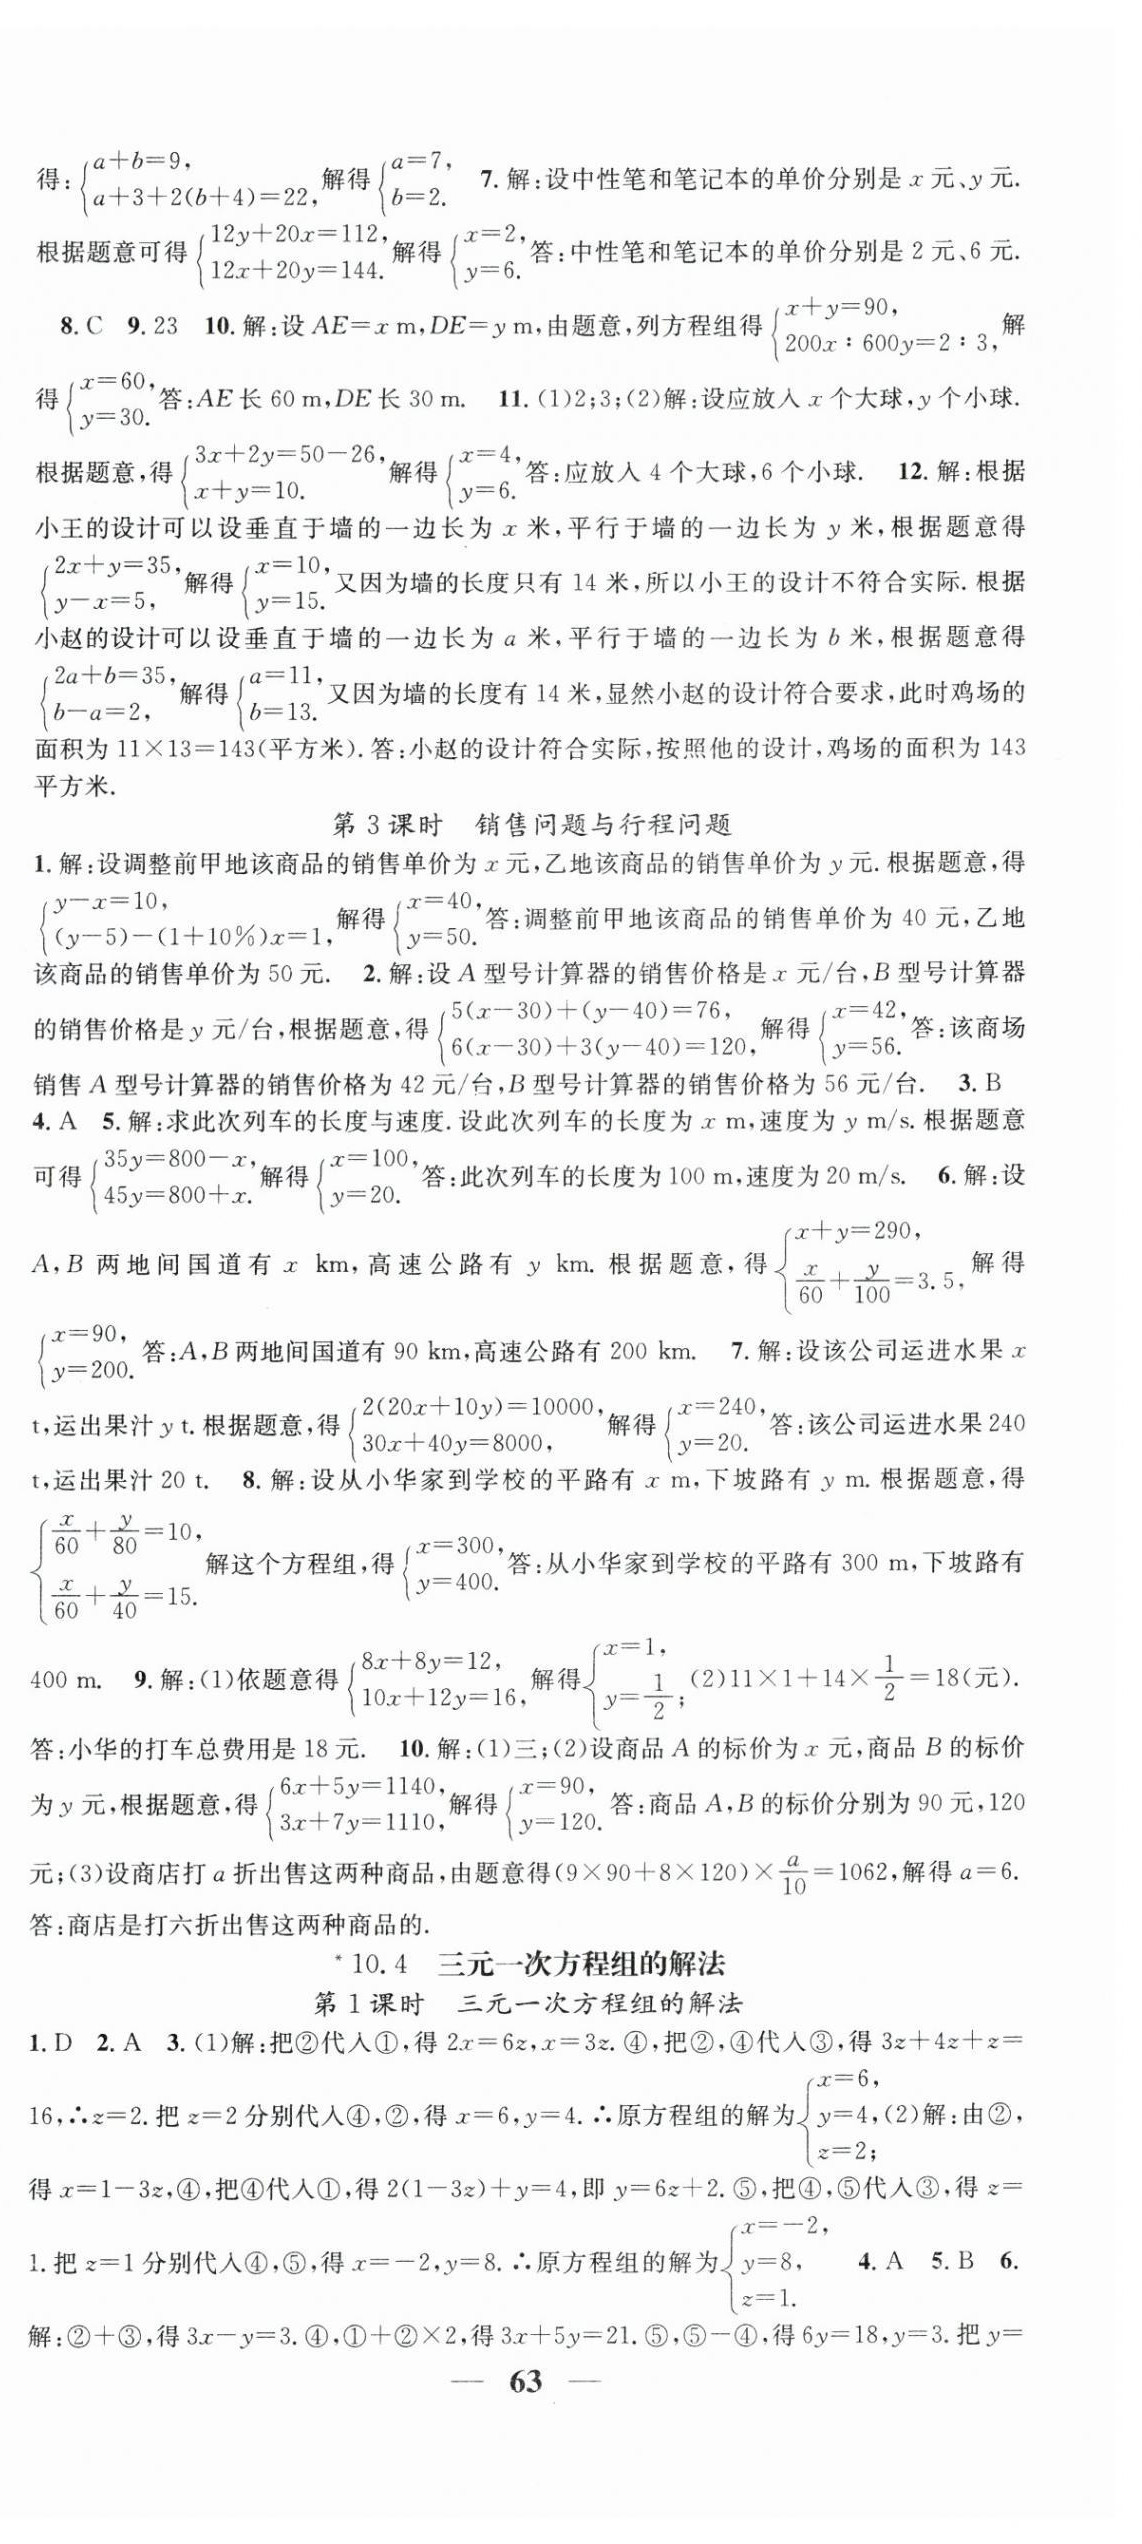 得:{a+b=9, a+3+2(b+4)=22, 解得{a=7, b=2. 7.解:设中性笔和笔记本的单价分别是 x 元、y 元.
根据题意可得{12y+20x=112, 12x+20y=144. 解得{x=2, y=6. 答:中性笔和笔记本的单价分别是 2 元、6 元.
8. C 9. 23 10.解:设 AE=x m,DE=y m,由题意,列方程组得{x+y=90, 200x∶600y=2∶3, 解
得{x=60, y=30. 答:AE 长 60 m,DE 长 30 m. 11. (1)2;3;(2)解:设应放入 x 个大球,y 个小球.
根据题意,得{3x+2y=50-26, x+y=10. 解得{x=4, y=6. 答:应放入 4 个大球,6 个小球. 12.解:根据
小王的设计可以设垂直于墙的一边长为 x 米,平行于墙的一边长为 y 米,根据题意得
{2x+y=35, y-x=5, 解得{x=10, y=15. 又因为墙的长度只有 14 米,所以小王的设计不符合实际. 根据
小赵的设计可以设垂直于墙的一边长为 a 米,平行于墙的一边长为 b 米,根据题意得
{2a+b=35, b-a=2, 解得{a=11, b=13. 又因为墙的长度有 14 米,显然小赵的设计符合要求,此时鸡场的
面积为 11×13=143(平方米). 答:小赵的设计符合实际,按照他的设计,鸡场的面积为 143
平方米.
第 3 课时 销售问题与行程问题
1.解:设调整前甲地该商品的销售单价为 x 元,乙地该商品的销售单价为 y 元. 根据题意,得
{y-x=10, (y-5)-(1+10%)x=1, 解得{x=40, y=50. 答:调整前甲地该商品的销售单价为 40 元,乙地
该商品的销售单价为 50 元. 2.解:设 A 型号计算器的销售价格是 x 元/台,B 型号计算器
的销售价格是 y 元/台,根据题意,得{5(x-30)+(y-40)=76, 6(x-30)+3(y-40)=120, 解得{x=42, y=56. 答:该商场
销售 A 型号计算器的销售价格为 42 元/台,B 型号计算器的销售价格为 56 元/台. 3. B
4. A 5.解:求此次列车的长度与速度. 设此次列车的长度为 x m,速度为 y m/s. 根据题意
可得{35y=800-x, 45y=800+x. 解得{x=100, y=20. 答:此次列车的长度为 100 m,速度为 20 m/s. 6.解:设
A,B 两地间国道有 x km,高速公路有 y km. 根据题意,得{x+y=290, x/60+y/100=3.5, 解得
{x=90, y=200. 答:A,B 两地间国道有 90 km,高速公路有 200 km. 7.解:设该公司运进水果 x
t,运出果汁 y t. 根据题意,得{2(20x+10y)=10000, 30x+40y=8000, 解得{x=240, y=20. 答:该公司运进水果 240
t,运出果汁 20 t. 8.解:设从小华家到学校的平路有 x m,下坡路有 y m. 根据题意,得
{x/60+y/80=10, x/60+y/40=15. 解这个方程组,得{x=300, y=400. 答:从小华家到学校的平路有 300 m,下坡路有
400 m. 9.解:(1)依题意得{8x+8y=12, 10x+12y=16, 解得{x=1, y=1/2; (2)11×1+14×1/2=18(元).
答:小华的打车总费用是 18 元. 10.解:(1)三;(2)设商品 A 的标价为 x 元,商品 B 的标价
为 y 元,根据题意,得{6x+5y=1140, 3x+7y=1110, 解得{x=90, y=120. 答:商品 A,B 的标价分别为 90 元,120
元;(3)设商店打 a 折出售这两种商品,由题意得(9×90+8×120)×a/10=1062,解得 a=6.
答:商店是打六折出售这两种商品的.
*10.4 三元一次方程组的解法
第 1 课时 三元一次方程组的解法
1. D 2. A 3. (1)解:把②代入①,得 2x=6z,x=3z. ④,把②,④代入③,得 3z+4z+z=
16,∴z=2. 把 z=2 分别代入④,②,得 x=6,y=4. ∴原方程组的解为{x=6, y=4, z=2; (2)解:由②,
得 x=1-3z,④,把④代入①,得 2(1-3z)+y=4,即 y=6z+2. ⑤,把④,⑤代入③,得 z=
1. 把 z=1 分别代入④,⑤,得 x=-2,y=8. ∴原方程组的解为{x=-2, y=8, z=1. 4. A 5. B 6.
解:②+③,得 3x-y=3. ④,①+②×2,得 3x+5y=21. ⑤,⑤-④,得 6y=18,y=3. 把 y=
— 63 —